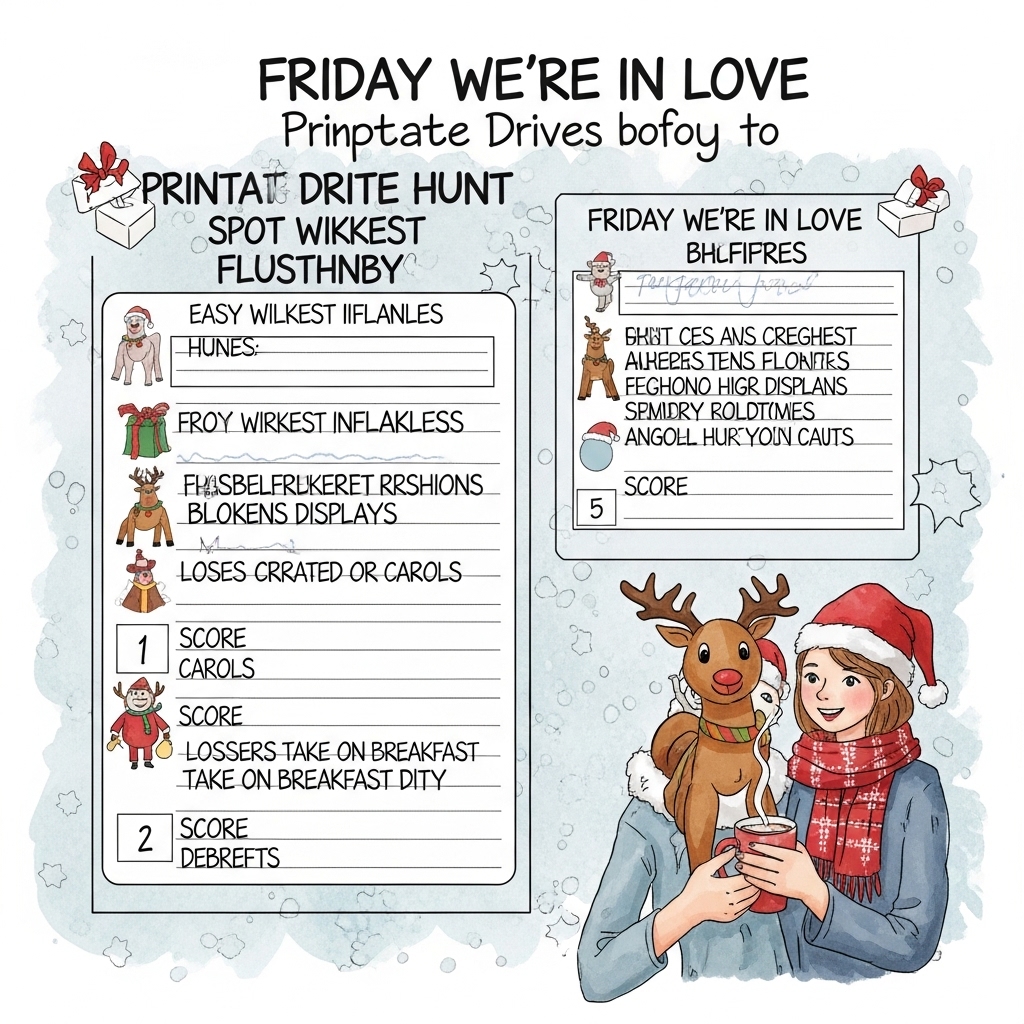 FRIDAY WE'RE IN LOVE
Prinptate Drives bofoy to
PRINTAT DRITE HUNT
SPOT WIKKEST
FLUSTHNBY
EASY WILKEST IIFLANLES
HUNES:
FROY WIRKEST INFLAKLESS
RRSHIONS
BLOKENS DISPLAYS
LOSES CRRATED OR CAROLS
1 SCORE
CAROLS
SCORE
LOSSERS TAKE ON BREAKFAST
TAKE ON BREAKFAST DITY
2 SCORE
DEBREFTS
FRIDAY WE'RE IN LOVE
BHLFIFRES
CES ANS CREGHEST
TENS
FEGHONO HIGR DISPLANS
SPMIDRY
ANGOLL CAUTS
5 SCORE